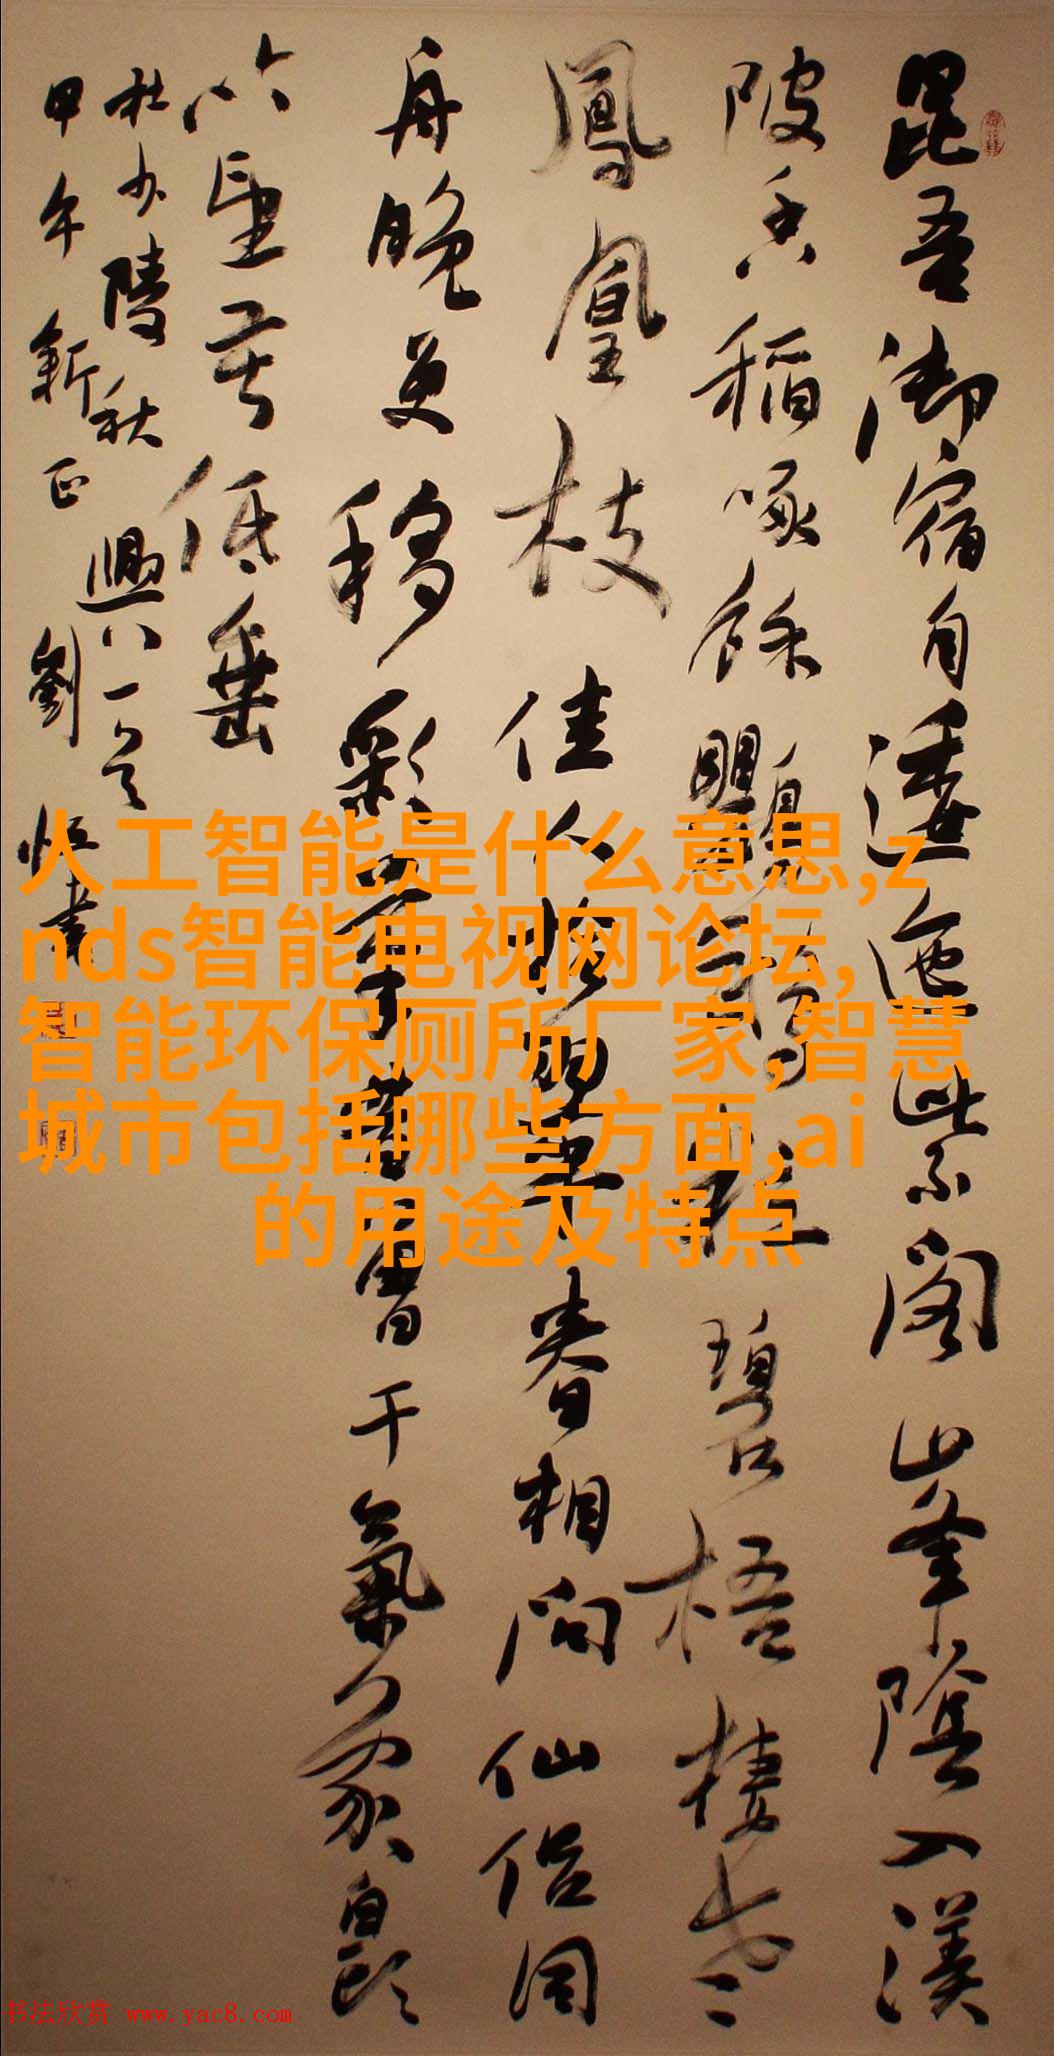 昆吾御宿自逶迤紫閣山峯陰入渼
陂香稻啄餘鸚鵡粒碧梧棲老
鳳凰枝佳人拾翠春相問仙侶同
舟晚更移彩筆昔曾干氣象白頭
吟望苦低垂
杜少陵秋興八一首
甲午新正劉恒書
人工智能是什么意思,z
nds智能电视网论坛,
智能环保厕所厂家,智慧
城市包括哪些方面,ai
的用途及特点
书法欣赏 www.yac8.com